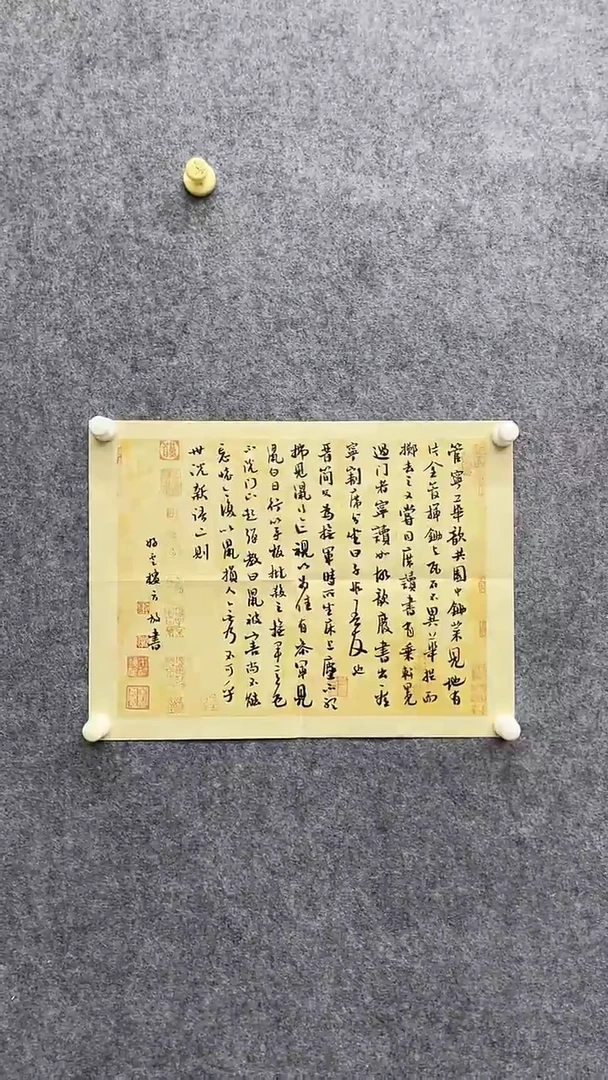 管寧与華歆共園中鋤菜見地有
片金管揮鋤与瓦石不異華捉而
擲去之又嘗同席讀書有乘軒冕
過門者寧讀如故歆廢書出看
寧割席分坐曰子非吾友也
晋簡文為撫軍時所坐床上塵不聽
拂見鼠行迹視以為佳有參軍見
鼠白日行以手板批殺之撫軍意色
不說門下起彈教曰鼠被害尚不能
忘懷今復以鼠損人無乃不可乎
世說新語二則
書